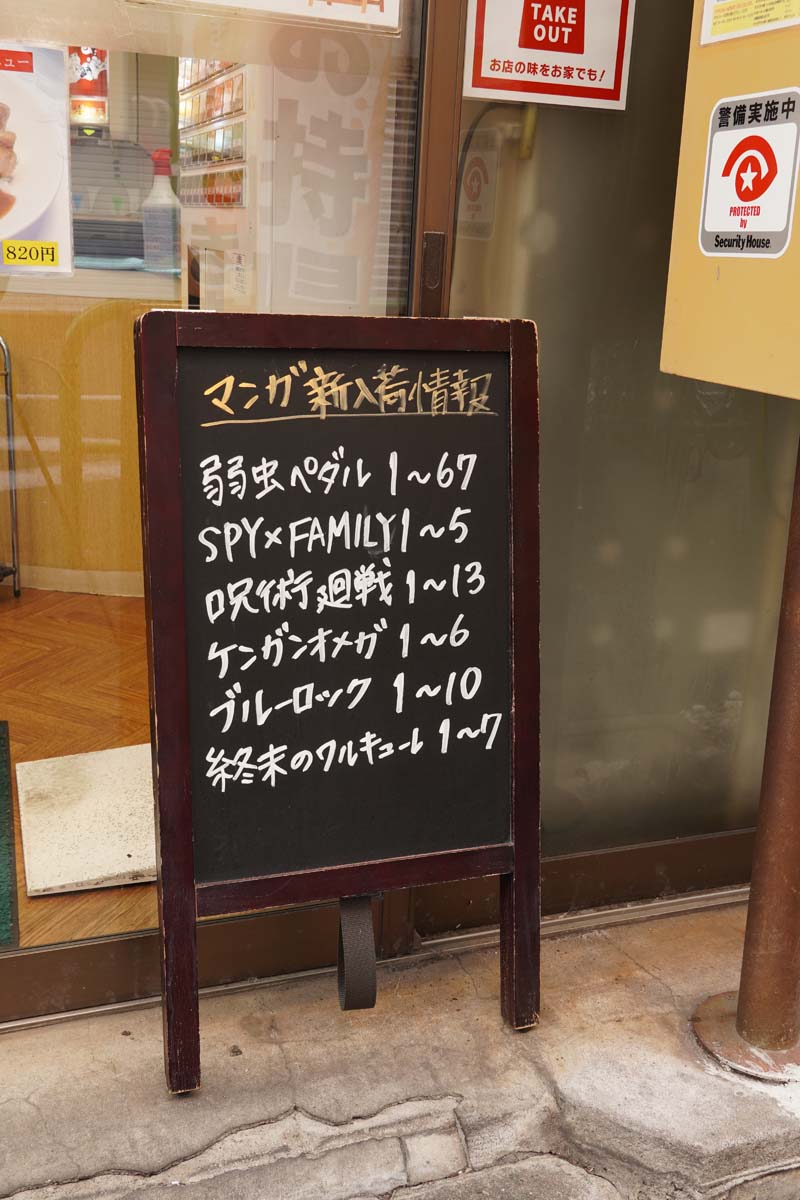 ュー
820円
お持
TAKE
OUT
お店の味をお家でも!
警備実施中
PROTECTED
by
Security House
マンガ新入荷情報
弱虫ペダル 1～67
SPY×FAMILY 1～5
呪術廻戦 1～13
ケンガンオメガ 1～6
ブルーロック 1～10
終末のワルキューレ 1～7